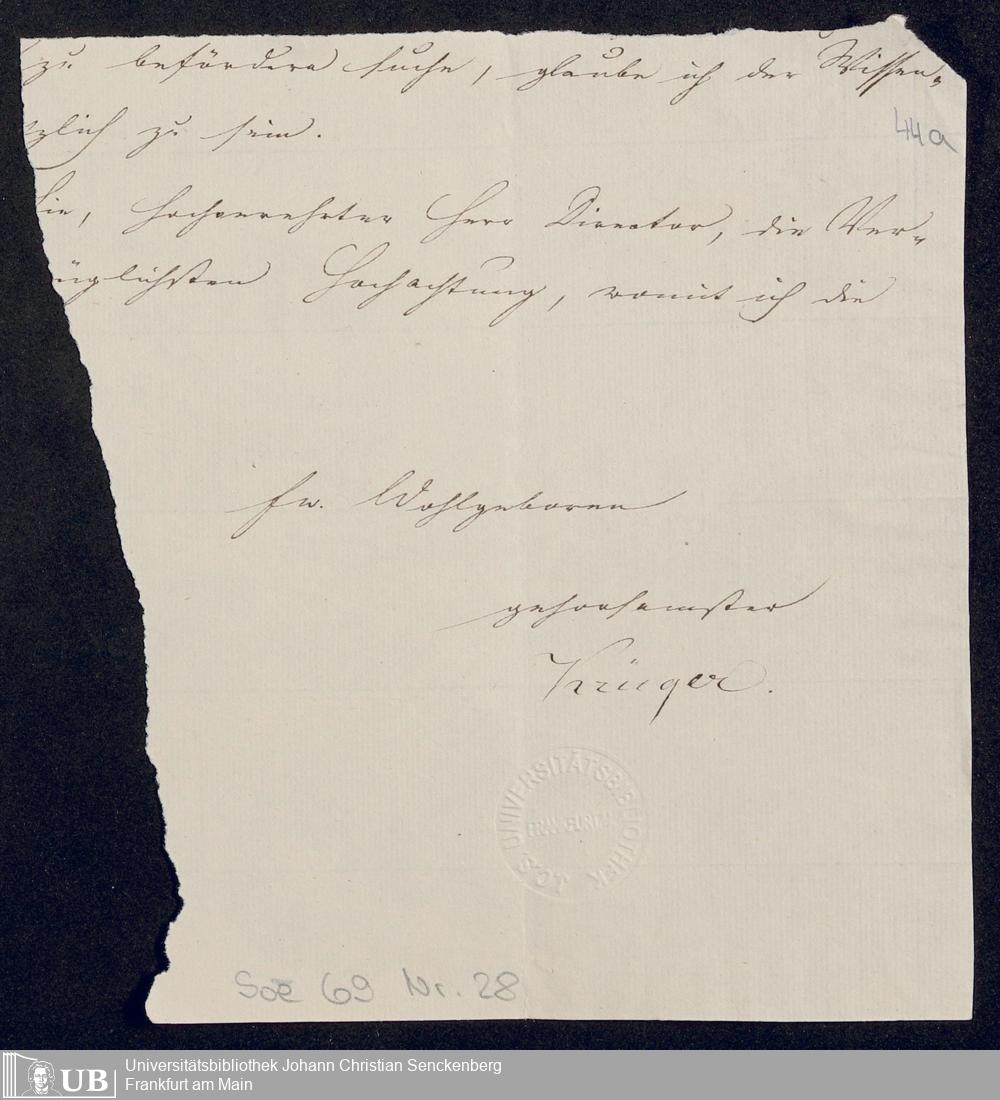 zu befördern suche, glaube ich der Wissen-
44a
zlich zu sein.
Sie, hochverehrter Herr Director, die Ver-
üglichsten Hochachtung, womit ich die
Ew. Wohlgeboren
gehorsamster
Krüger.
J.C.S. UNIVERSITÄTSBIBLIOTHEK
FRANKFURT/M
Soe 69 Nr. 28
UB
Universitätsbibliothek Johann Christian Senckenberg
Frankfurt am Main